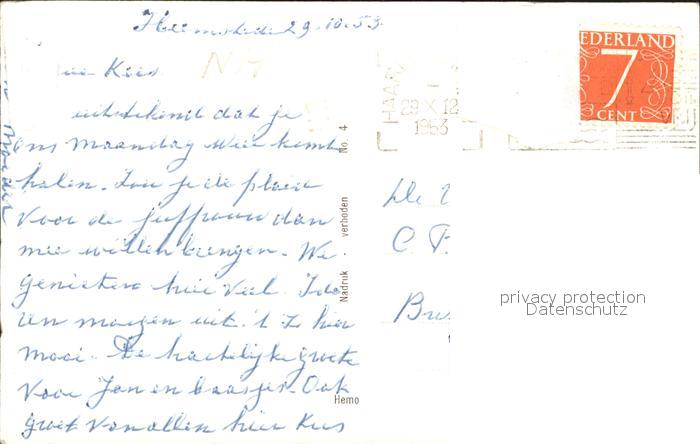 Heemstede 29-10-53
Kees
uitstekend dat je
ons maandag weer komt
halen. Zou je de plaid
voor de juffrouw dan
mee willen brengen. We
genieten hier veel.
en morgen uit. 't Is hier
mooi. De hartelijke groete
voor Jan en baasje. Ook
groet van allen hier Kees
Moeder
No. 4
Nadruk verboden
Hemo
HAAR
29 X 12
1953
EDERLAND
7
CENT
De
C.
privacy protection
Datenschutz